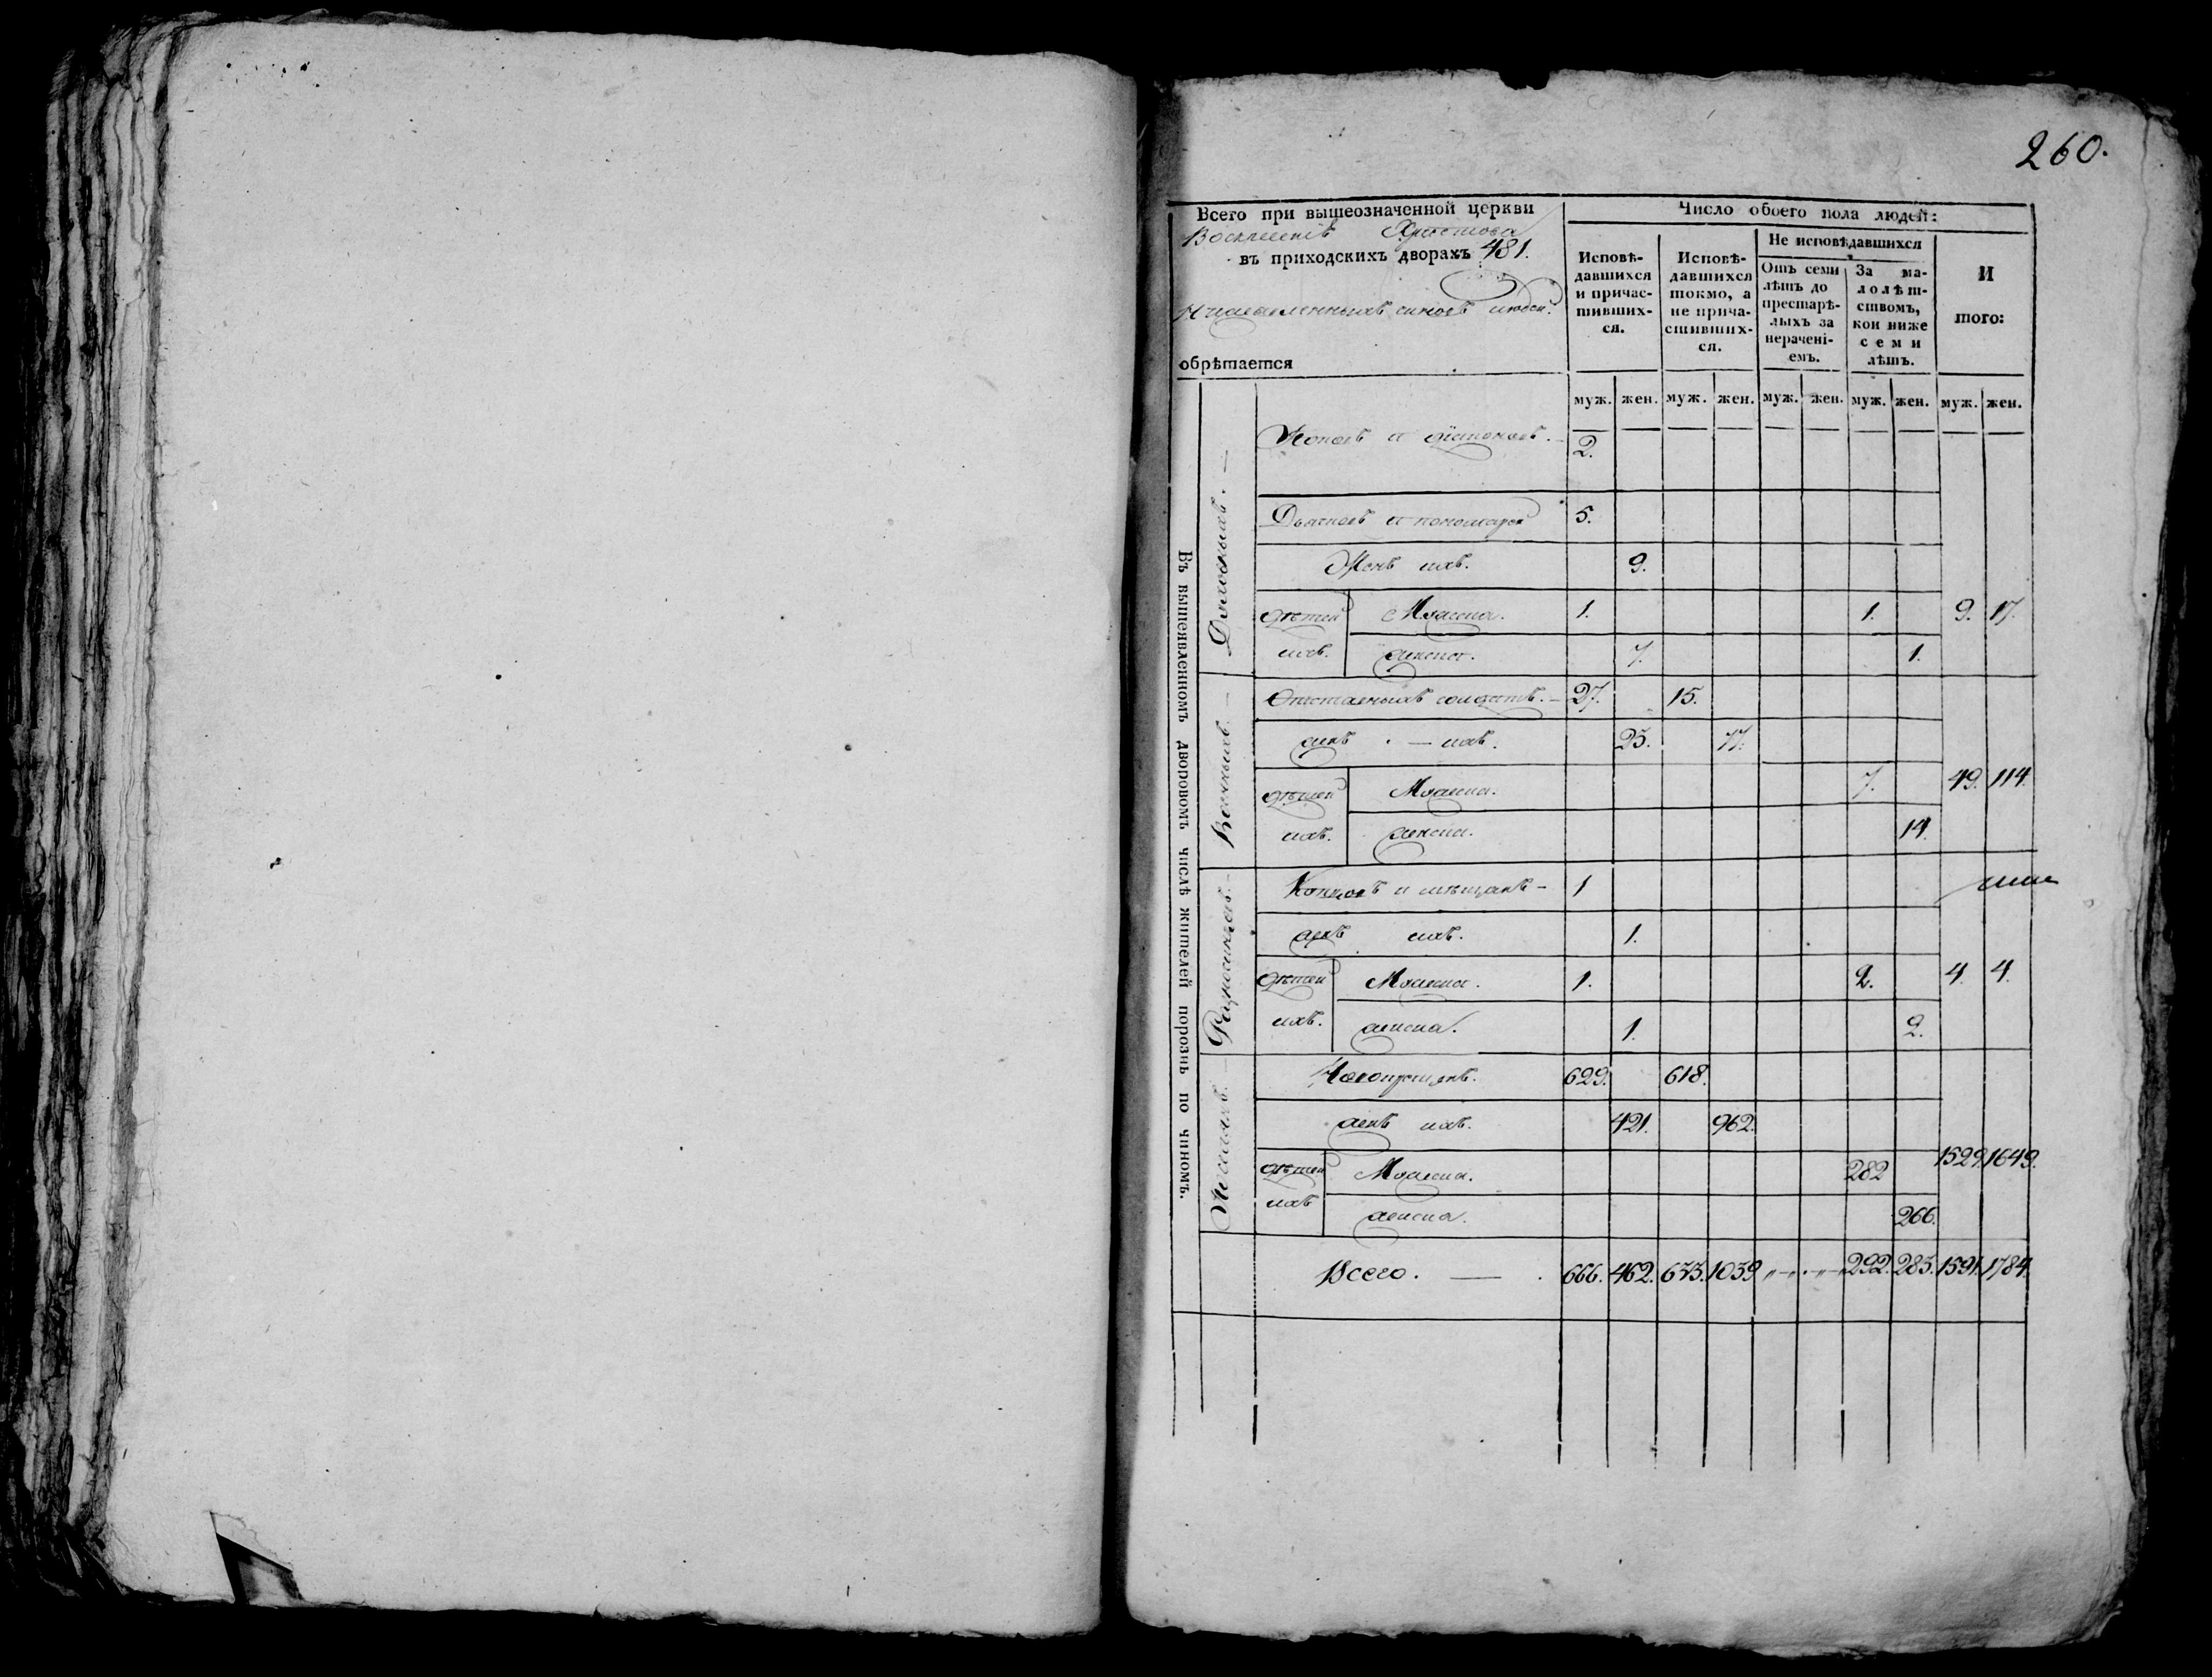 260.
Всего при вышеозначенной церкви
Воскресенія Христова
въ приходскихъ дворахъ 481.
обрѣтается
Число обоего пола людей:
Исповѣ-
давшихся
и причас-
тивших-
ся.
Исповѣ-
давшихся
токмо, а
не прича-
стивших-
ся.
Не исповѣдавшихся
Отъ семи
лѣтъ до
престарѣ-
лыхъ за
нерачені-
емъ.
За ма-
лолѣт-
ствомъ,
кои ниже
семи
лѣтъ.
И
того:
муж. жен. муж. жен. муж. жен. муж. жен. муж. жен.
Въ вышеявленномъ дворовомъ числѣ жителей порознь по чиномъ.
Духовныхъ. —
Поповъ и діаконовъ. 2.
Дьячковъ и пономарей 5.
Женъ ихъ. 9.
дѣтей Мужска. 1. 1. 9. 17.
ихъ. женска. 7. 1.
Военныхъ. —
Отставныхъ солдатъ. — 27. 15.
женъ — ихъ. 25. 77.
дѣтей Мужска. 7. 49. 114.
ихъ. женска. 14.
Разночинцевъ. —
и мѣщанъ — 1
женъ ихъ. 1.
дѣтей Мужска. 1. 2. 4. 4.
ихъ. женска. 1. 2.
629. 618.
женъ ихъ. 421. 962.
дѣтей Мужска. 282 1529. 1649.
ихъ женска. 266.
Всего. — 666. 462. 633. 1039 292. 283. 1591. 1784.